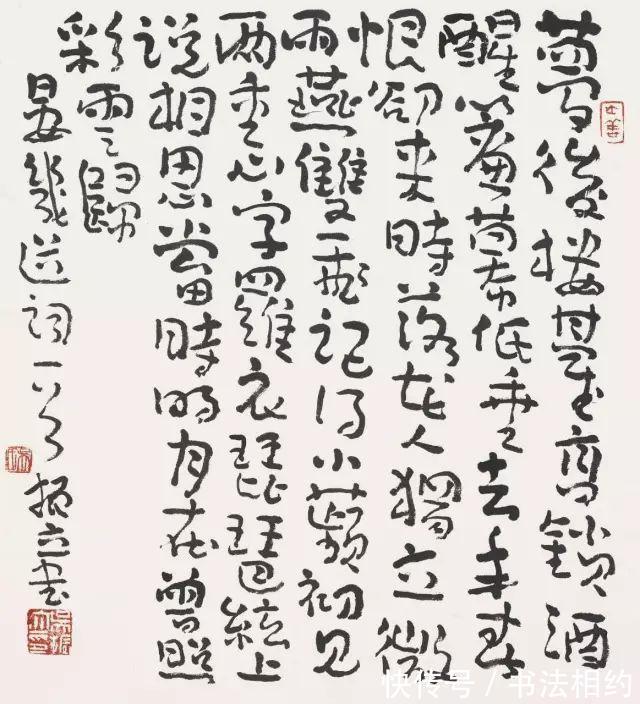 夢後樓臺高鎖酒
醒簾幕低垂去年春
恨卻來時落花人獨立微
雨燕雙飛記得小蘋初見
两重心字羅衣琵琶絃上
说相思當時明月在曾照
彩雲歸
晏幾道词一首 振立书
快传号 / 书法相约